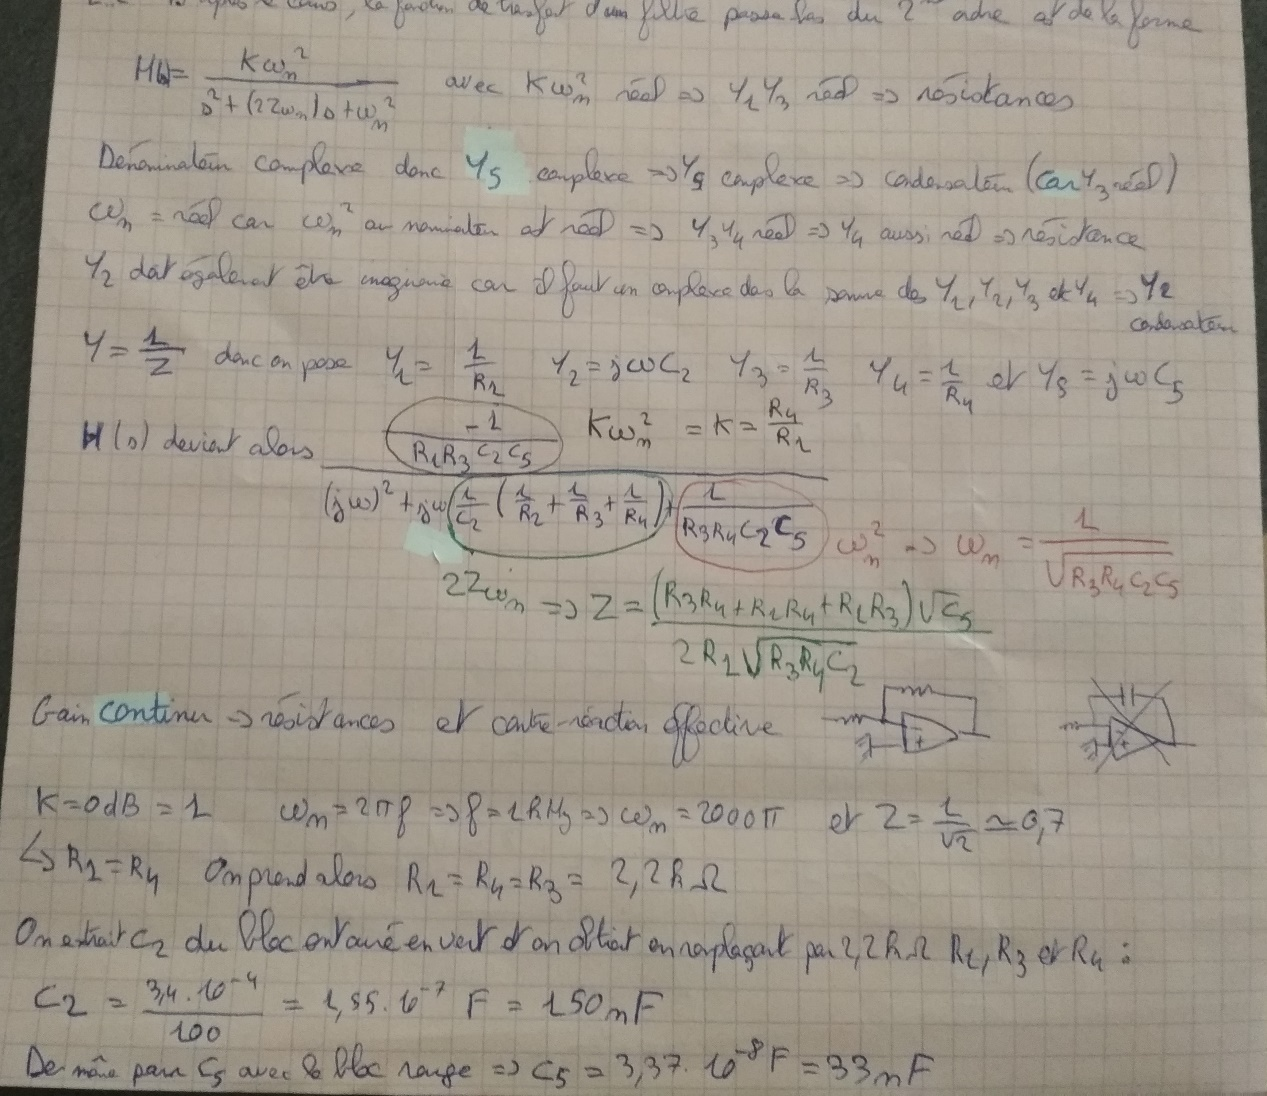 D'après le cours, la fonction de transfert d'un filtre passe bas du 2 ordre est de la forme
H(s)= Kωn² / s²+(2Zωn)s+ωn² avec Kωn² réel => Y1Y3 réel => résistances
Dénominateur complexe donc Y5 complexe => Y5 complexe => condensateur (car Y3 réel)
ωn = réel car ωn² au numérateur est réel => Y3Y4 réel => Y4 aussi réel => résistance
Y2 doit également être imaginaire car il faut un complexe dans la somme des Y1, Y2, Y3 et Y4 => Y2
condensateur
Y = 1/Z donc on pose Y1 = 1/R1 Y2 = jωC2 Y3 = 1/R3 Y4 = 1/R4 et Y5 = jωC5
H(s) devient alors -1/(R1R3C2C5) Kωn² = K = R4/R1
(jω)² + jω(1/C2 (1/R1 + 1/R3 + 1/R4)) + 1/(R3R4C2C5) ωn² => ωn = 1/√(R3R4C2C5)
2Zωn => Z = (R3R4+R1R4+R1R3)√C5 / 2R1√(R3R4C2)
Gain continu => résistances et contre-réaction effective
K=0dB = 1 ωn = 2πf => f=1kHz => ωn = 2000π et Z = 1/√2 ≃ 0,7
↳ R1 = R4 On prend alors R1 = R4 = R3 = 2,2kΩ
On extrait C2 du bloc entouré en vert et on obtient en remplaçant par 2,2kΩ R1, R3 et R4 :
C2 = 3,4.10⁻⁴ / 100 = 1,55.10⁻⁷ F = 150nF
De même pour C5 avec le bloc rouge => C5 = 3,37.10⁻⁸ F = 33nF